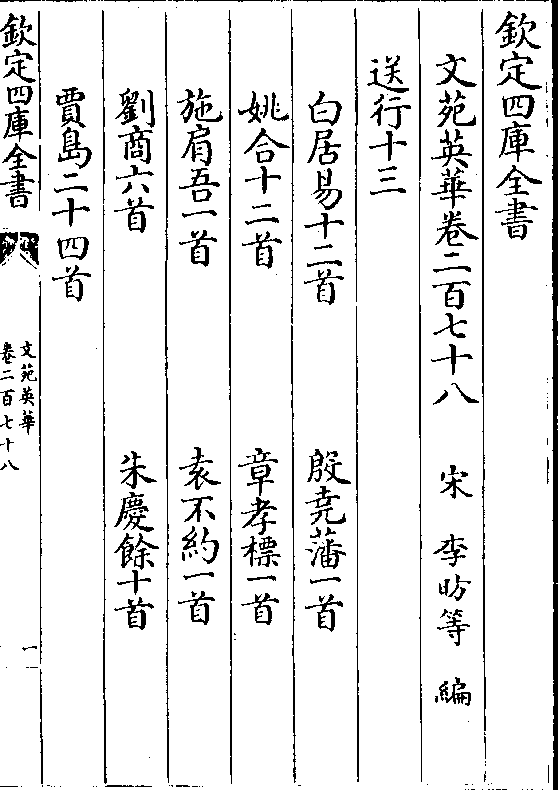 欽定四庫全書
文苑英華卷二百七十八 宋 李昉等 編
送行十三
白居易十二首 殷堯藩一首
姚合十二首 章孝標一首
施肩吾一首 袁不約一首
劉商六首 朱慶餘十首
賈島二十四首
欽定四庫全書
文苑英華
卷二百七十八
一